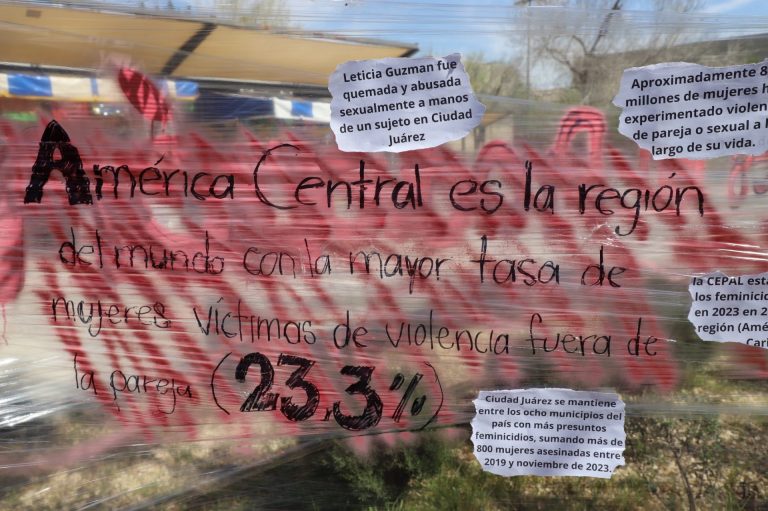 Leticia Guzman fue
quemada y abusada
sexualmente a manos
de un sujeto en Ciudad
Juárez
Aproximadamente 8
millones de mujeres h
experimentado violen
de pareja o sexual a l
largo de su vida.
América Central es la región
del mundo con la mayor tasa de
mujeres víctimas de violencia fuera de
la pareja (23.3%)
la CEPAL esta
los feminicid
en 2023 en 2
región (Amé
Cari
Ciudad Juárez se mantiene
entre los ocho municipios del
país con más presuntos
feminicidios, sumando más de
800 mujeres asesinadas entre
2019 y noviembre de 2023.